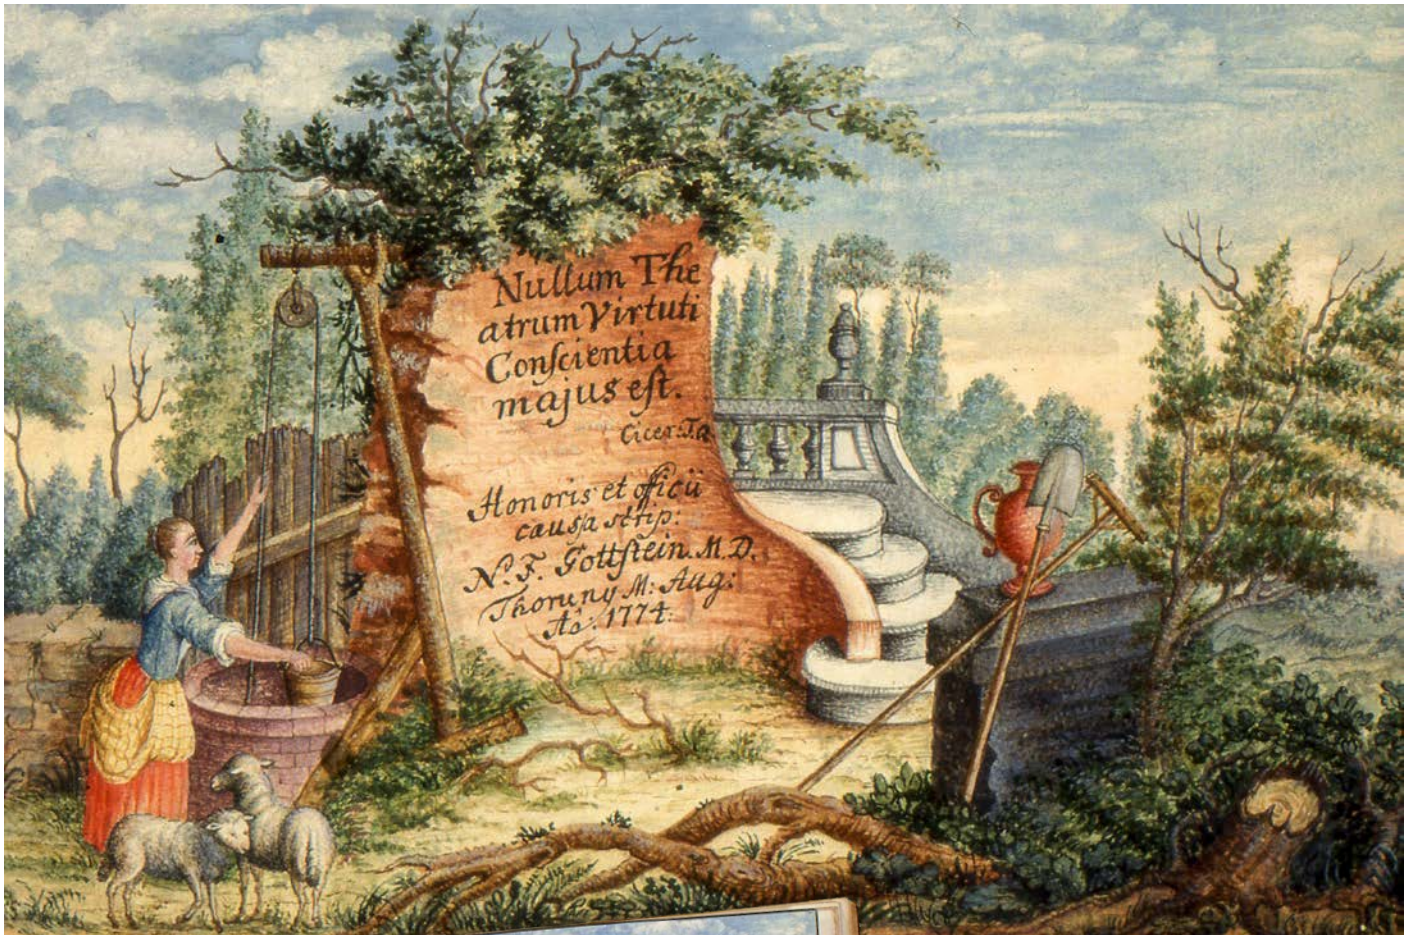 Nullum The
atrum Virtuti
Conſcientia
majus eſt.
Cicer: Tũ
Honoris et officii
cauſa ſcrip:
N. F. Gottſtein. M. D.
Thoruny M: Aug:
Aõ. 1774: